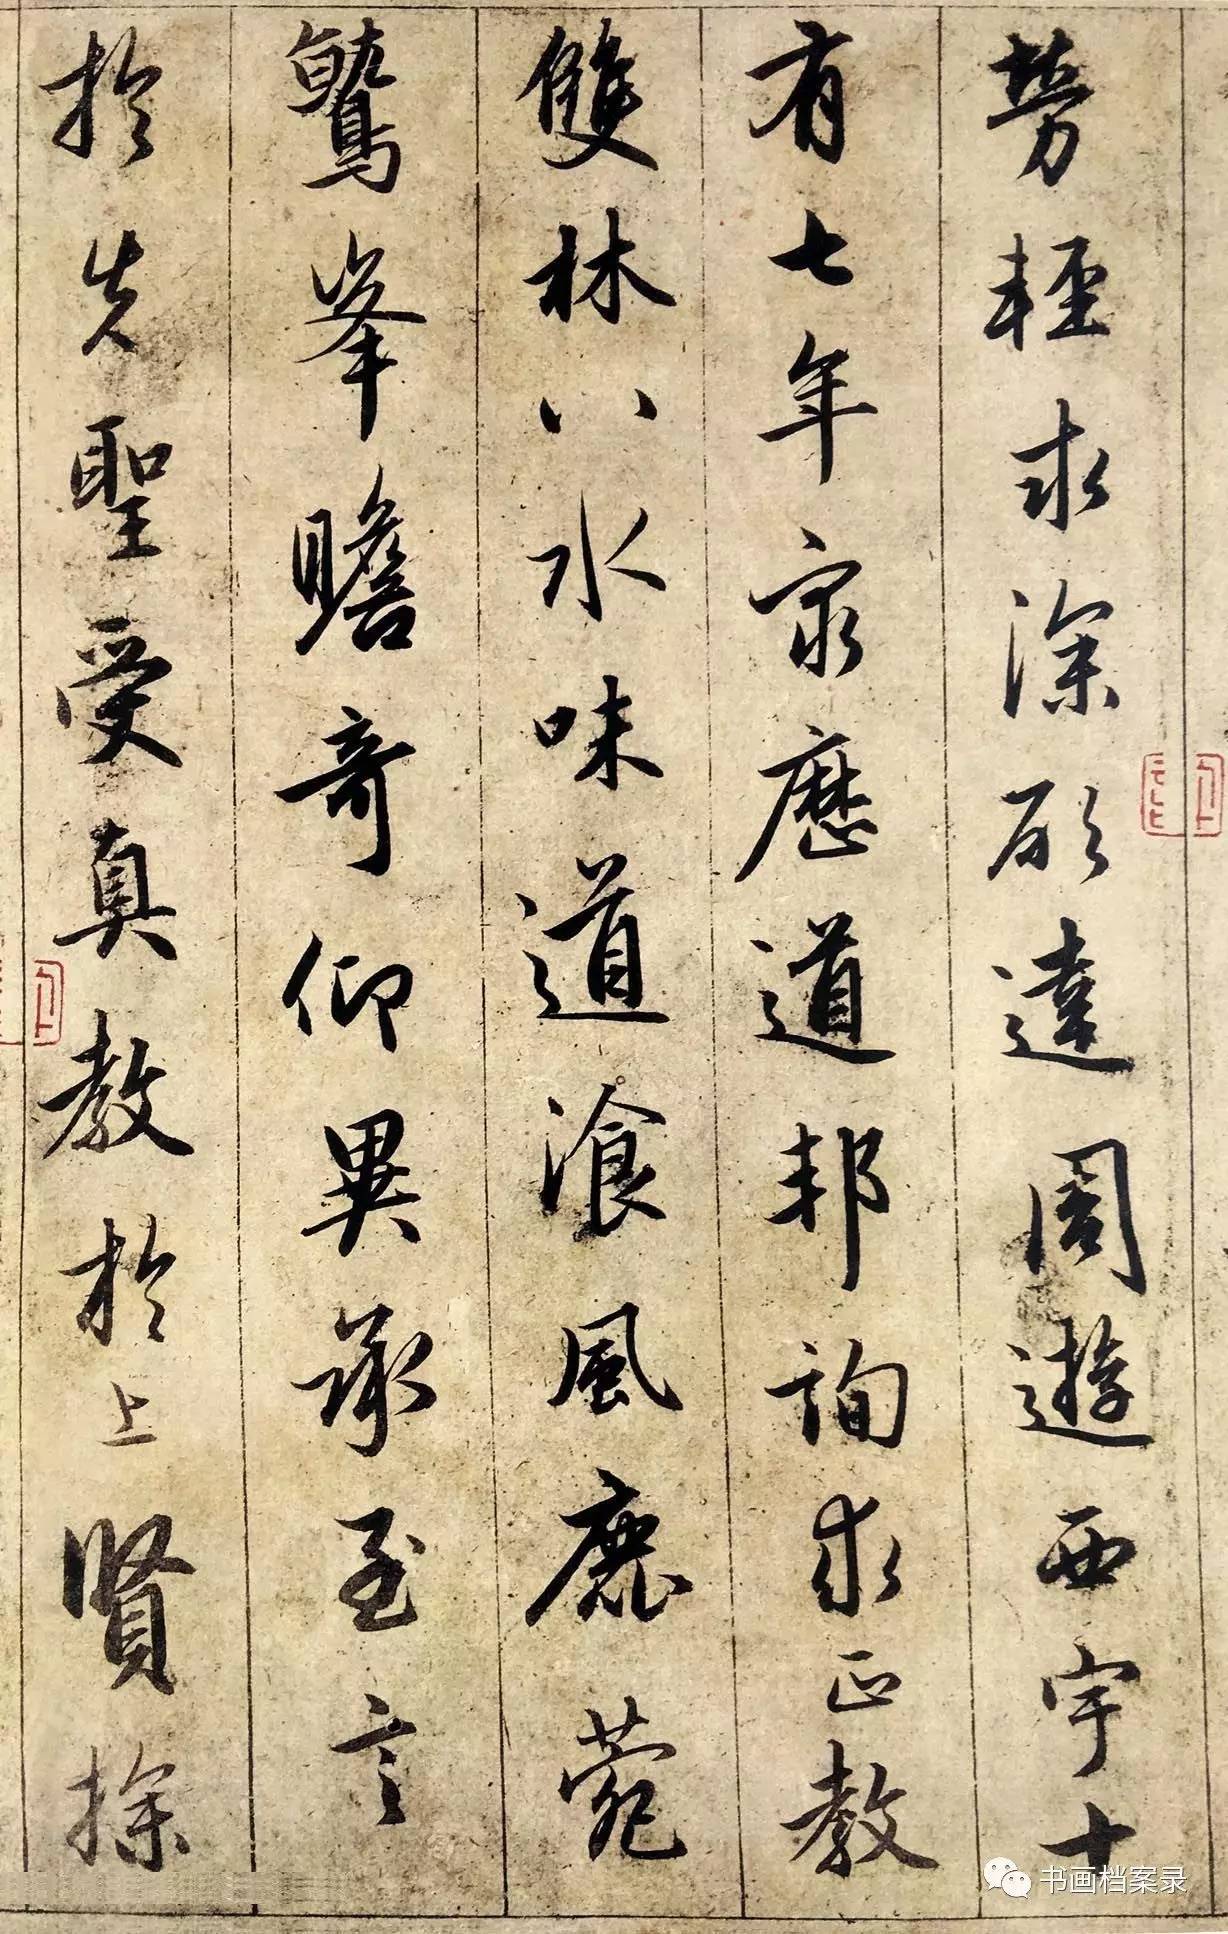 勞輕求深願達周遊西宇十
有七年窮歷道邦詢求正教
雙林八水味道飡風鹿菀
鷲峯瞻奇仰異承至言
於先聖受真教於上賢探
书画档案录